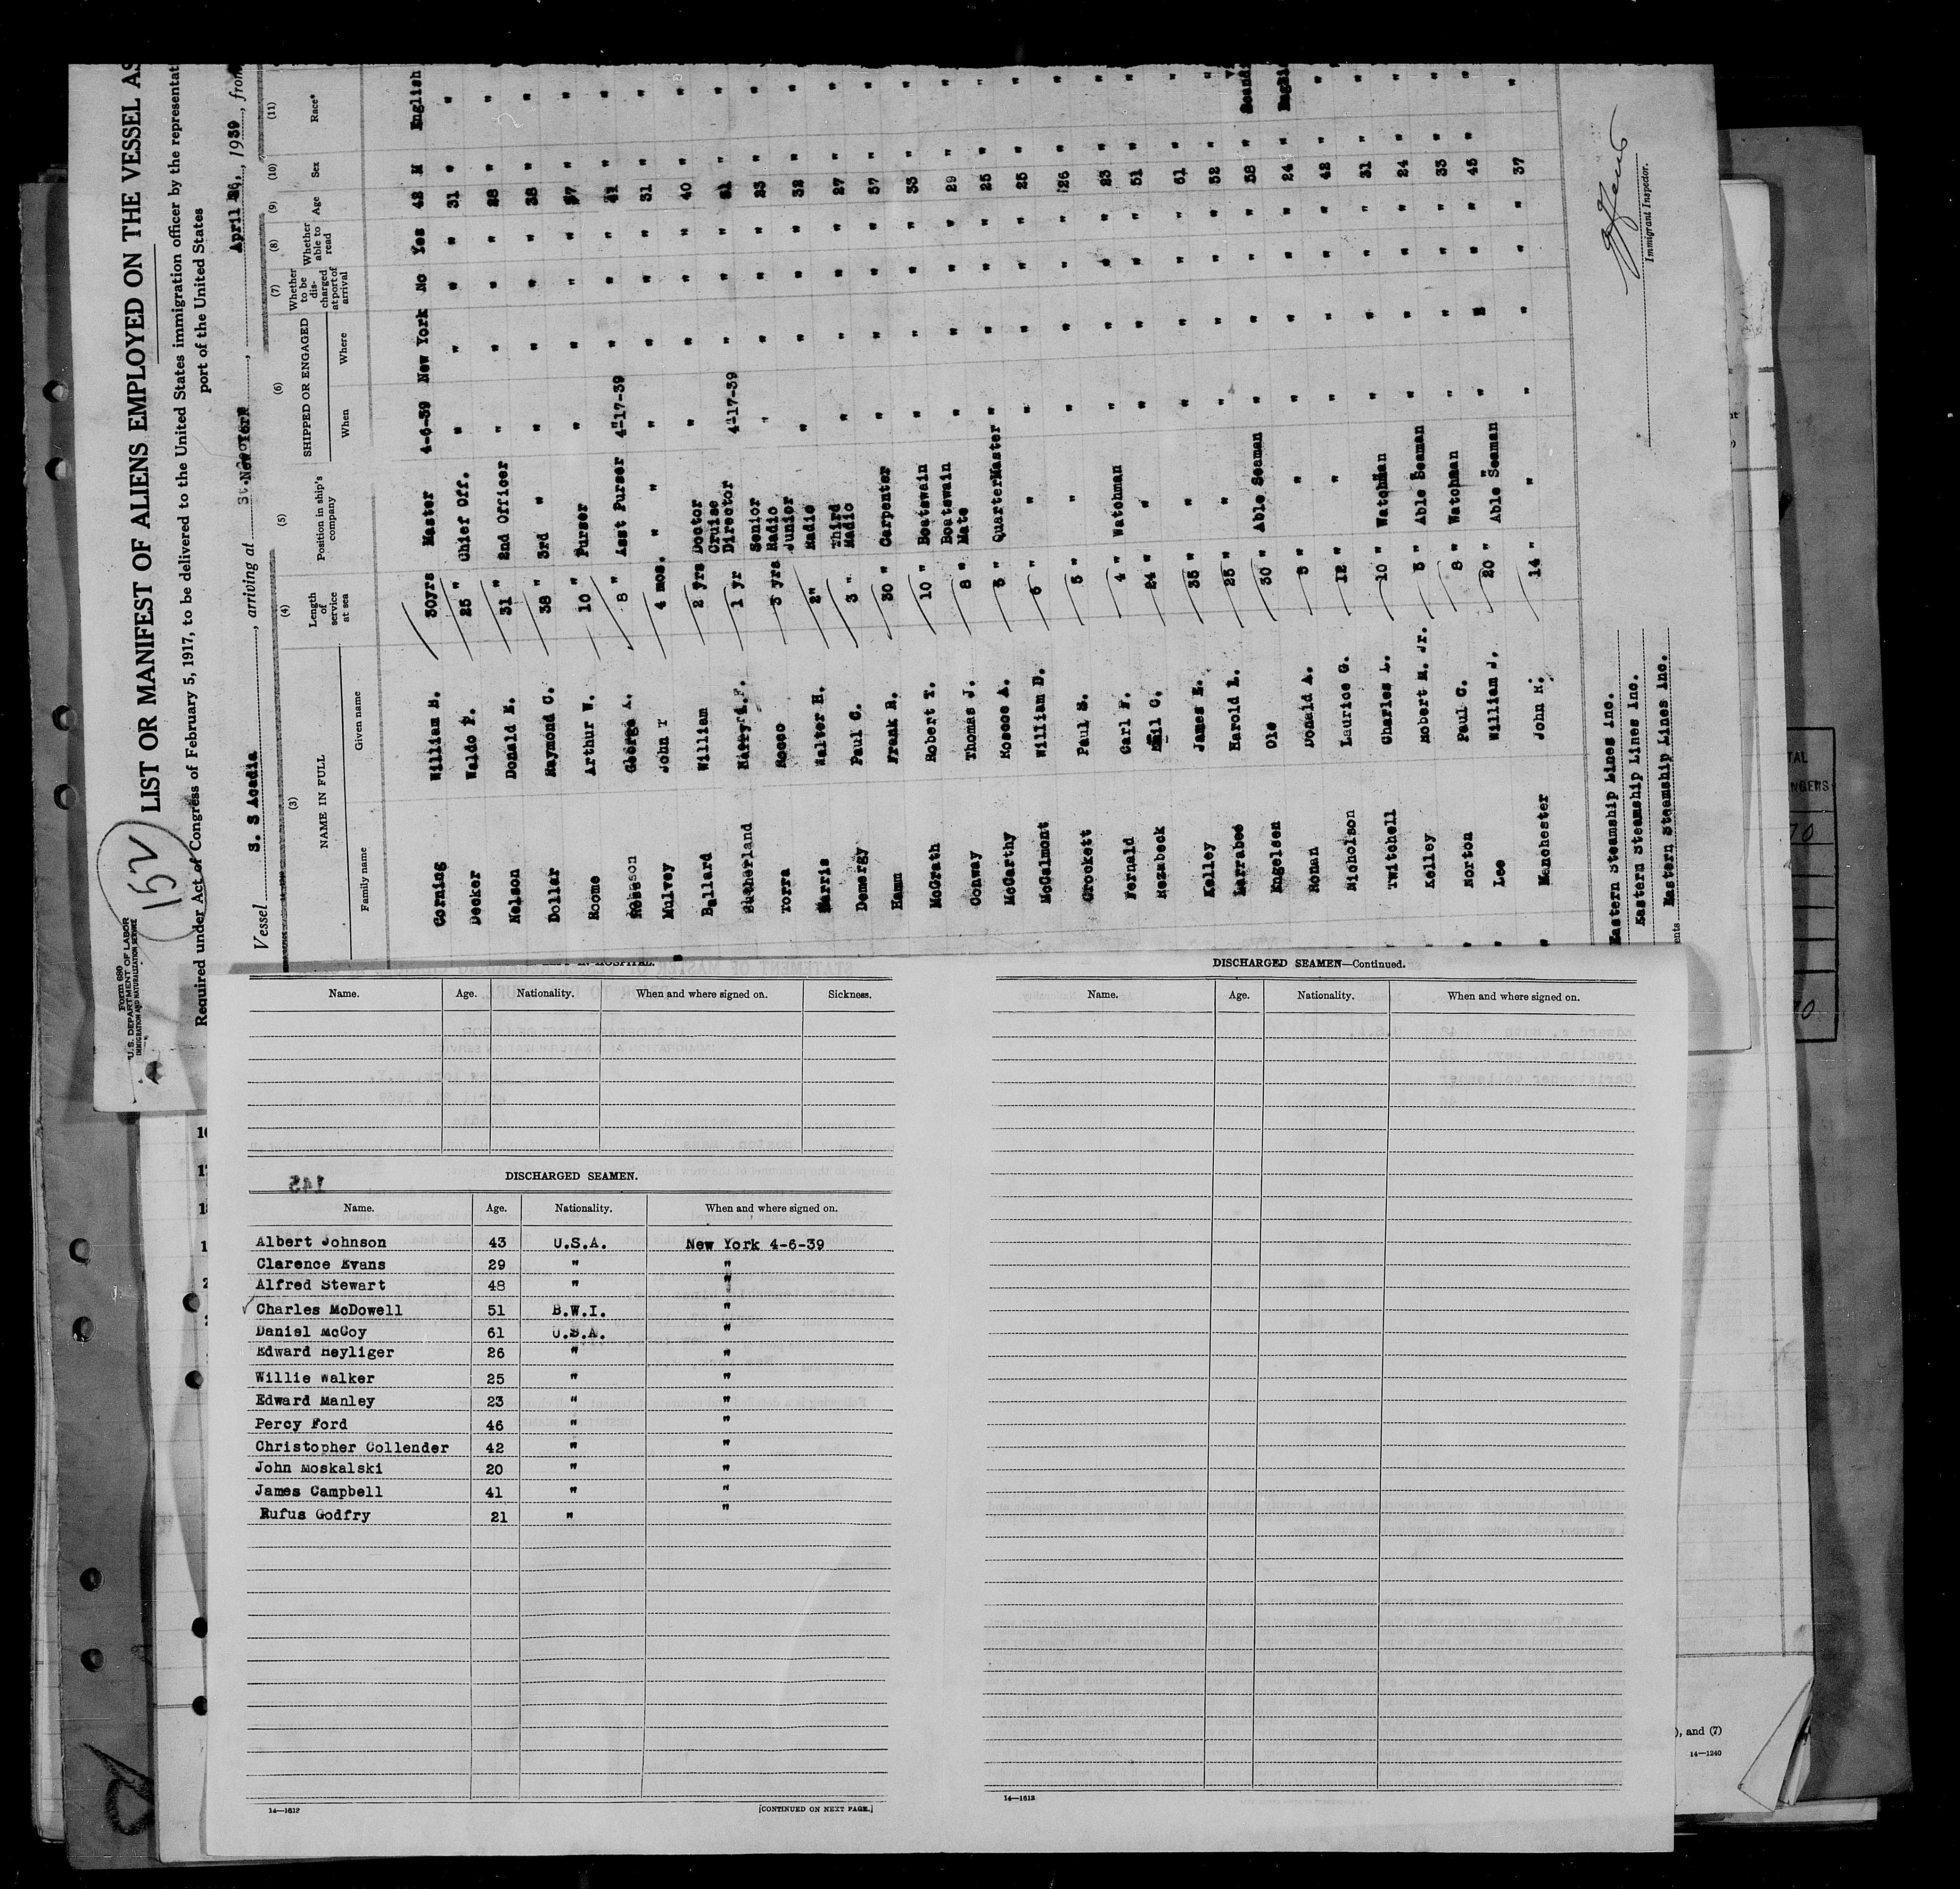 Form 680
U. S. DEPARTMENT OF LABOR
IMMIGRATION AND NATURALIZATION SERVICE
152
LIST OR MANIFEST OF ALIENS EMPLOYED ON THE VESSEL AS
Required under Act of Congress of February 5, 1917, to be delivered to the United States immigration officer by the representat
port of the United States
Vessel S. S Acadia, arriving at New York, April 26, 1939, from
(3) (4) (5) (6) (7) (8) (9) (10) (11)
NAME IN FULL Length of service at sea Position in ship's company SHIPPED OR ENGAGED Whether to be discharged at port of arrival Whether able to read Age Sex Race*
Family name Given name When Where
Corning William H. 30yrs Master 4-6-39 New York No Yes 42 M English
Decker Waldo F. 25 " Chief Off. " " " " 31 " "
Nelson Donald E. 31 " 2nd Officer " " " " 28 " "
Dollar Raymond C. 38 " 3rd " " " " " 38 " "
Roome Arthur W. 10 " Purser " " " " 37 " "
George A. 8 " Asst Purser 4-17-39 " " " 41 " "
Mulvey John T 4 mos. " " " " " " 31 " "
Ballard William 2 yrs Doctor " " " " 40 " "
Sutherland Harry F. 1 yr Cruise Director 4-17-39 " " " 21 " "
Torra Rocco 3 yrs Senior Radio " " " " 23 " "
Harris Walter H. 2" Junior Radio " " " " 32 " "
Demergy Paul C. 3 " Third Radio " " " " 27 " "
Hamm Frank R. 30 " Carpenter " " " " 57 " "
McGrath Robert T. 10 " Boatswain " " " " 33 " "
Conway Thomas J. 8 " Boatswain Mate " " " " 29 " "
McCarthy Roscoe A. 3 " QuarterMaster " " " " 25 " "
McCalmont William D. 6 " " " " " " 25 " "
Crockett Paul S. 5 " " " " " " 26 " "
Fernald Carl F. 4 " Watchman " " " " 23 " "
Rezabeck Emil C. 24 " " " " " " 51 " "
Kelley James E. 35 " " " " " " 61 " "
Larrabee Harold L. 25 " " " " " " 52 " "
Engelsen Ole 30 " Able Seaman " " " " 58 " Scandi
Ronan Donald A. 3 " " " " " " 24 " English
Nicholson Laurice G. 12 " " " " " " 42 " "
Twitchell Charles L. 10 " Watchman " " " " 31 " "
Kelley Robert M. Jr. 3 " Able Seaman " " " " 24 " "
Norton Paul C. 8 " Watchman " " " " 33 " "
Lee William J. 20 " Able Seaman " " " " 45 " "
Manchester John R. 14 " " " " " " 37 " "
Eastern Steamship Lines Inc.
Eastern Steamship Lines Inc.
Eastern Steamship Lines Inc.
Immigrant Inspector.
Name. Age. Nationality. When and where signed on. Sickness.
DISCHARGED SEAMEN.
Name. Age. Nationality. When and where signed on.
Albert Johnson 43 U.S.A. New York 4-6-39
Clarence Evans 29 " "
Alfred Stewart 48 " "
Charles McDowell 51 B.W.I. "
Daniel McCoy 61 U.S.A. "
Edward Heyliger 26 " "
Willie Walker 25 " "
Edward Manley 23 " "
Percy Ford 46 " "
Christopher Collender 42 " "
John Moskalski 20 " "
James Campbell 41 " "
Rufus Godfry 21 " "
14—1612
[CONTINUED ON NEXT PAGE.]
DISCHARGED SEAMEN—Continued.
Name. Age. Nationality. When and where signed on.
14—1612
), and (7)
14—1240